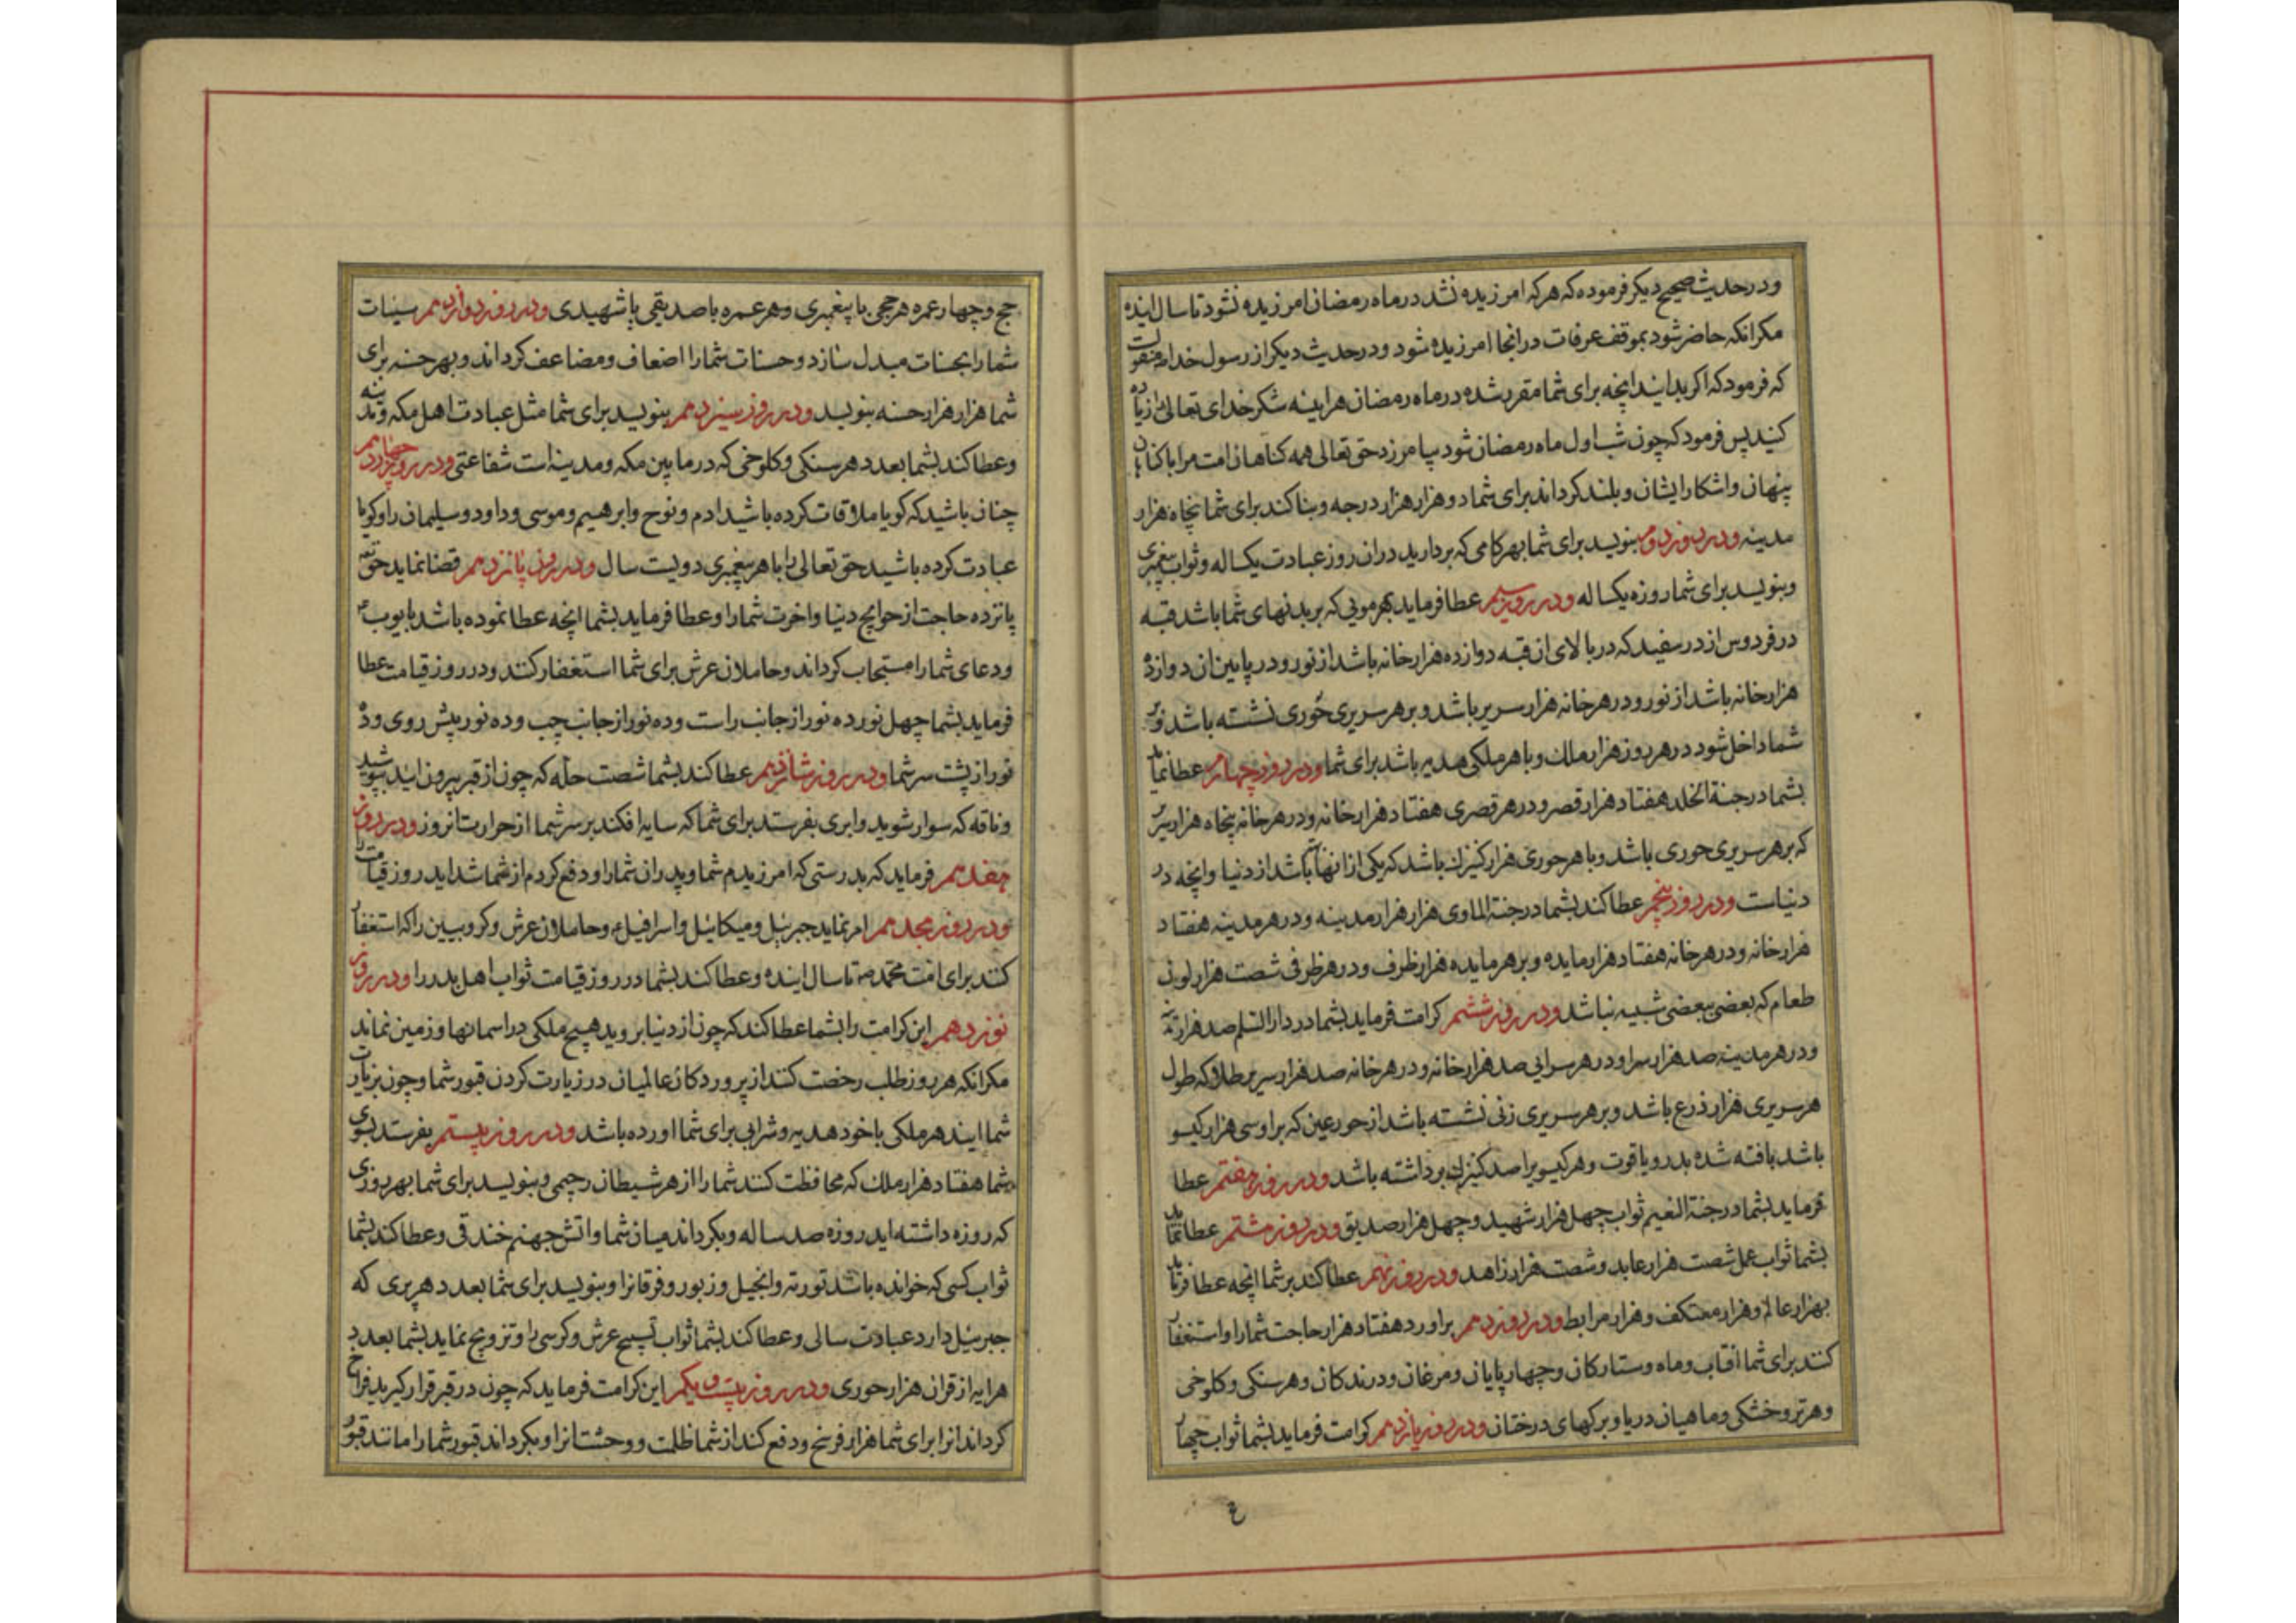 ودر حدیث صحیح دیکر فرموده که هرکه امرزیده نشد در ماه رمضان امرزیده نشود تا سال اینده
مکر انکه حاضر شود بموقف عرفات در انجا امرزیده شود ودر حدیث دیکر از رسول خدا منقولست
که فرمود که اکر بدانید انچه برای شما مقرر شده در ماه رمضان هراینه شکر خدای تعالی را زیاده
کنید پس فرمود که چون شب اول ماه رمضان شود بیامرزد حق تعالی همه کناهان امت مرا با کناهان
پنهان واشکارا ایشان وبلند کرداند برای شما دو هزار هزار درجه وبنا کند برای شما پنجاه هزار
مدینه ودر روز دوم بنویسد برای شما بهر کامی که بردارید در ان روز عبادت یکساله وثواب پیغمبری
وبنویسد برای شما روزه یکساله ودر روز سیم عطا فرماید بهر مویی که بر بدنهای شما باشد قبه
در فردوس از در سفید که در بالای ان قبه دوازده هزار خانه باشد از نور ودر پایین ان دوازده
هزار خانه باشد از نور ودر هر خانه هزار سریر باشد وبر هر سریری حوری نشسته باشد وبر
شما داخل شود در هر روز هزار ملک وبا هر ملکی هدیه باشد برای شما ودر روز چهارم عطا نماید
بشما در جنة الخلد هفتاد هزار قصر ودر هر قصری هفتاد هزار خانه ودر هر خانه پنجاه هزار سریر
که بر هر سریری حوری باشد وبا هر حوری هزار کنیزک باشد که یکی از انها باشد از دنیا وانچه در
دنیاست ودر روز پنجم عطا کند بشما در جنة الماوی هزار هزار مدینه ودر هر مدینه هفتاد
هزار خانه ودر هر خانه هفتاد هزار مایده وبر هر مایده هزار ظرف ودر هر ظرفی شصت هزار لون
طعام که بعضی ببعضی شبیه نباشد ودر روز ششم کرامت فرماید بشما در دار السلم صد هزار مدینه
ودر هر مدینه صد هزار سرا ودر هر سرایی صد هزار خانه ودر هر خانه صد هزار سریر طلا که طول
هر سریری هزار ذرع باشد وبر هر سریری زنی نشسته باشد از حور عین که بر او سی هزار کیسو
باشد بافته شده بدر ویاقوت وهر کیسو را صد کنیزک برداشته باشد ودر روز هفتم عطا
فرماید بشما در جنة النعیم ثواب چهل هزار شهید وچهل هزار صدیق ودر روز هشتم عطا نماید
بشما ثواب عمل شصت هزار عابد وشصت هزار زاهد ودر روز نهم عطا کند بر شما انچه عطا فرماید
بهزار عالم وهزار معتکف وهزار مرابط ودر روز دهم براورد هفتاد هزار حاجت شما را واستغفار
کنند برای شما افتاب وماه وستارکان وچهارپایان ومرغان ودرندکان وهر سنکی وکلوخی
وهر تر وخشکی وماهیان دریا وبرکهای درختان ودر روز یازدهم کرامت فرماید بشما ثواب چهار
حج وچهار عمره هر حجی با پیغمبری وهر عمره با صدیقی یا شهیدی ودر روز دوازدهم سیئات
شما را بحسنات مبدل سازد وحسنات شما را اضعاف ومضاعف کرداند وبهر حسنه برای
شما هزار هزار حسنه بنویسد ودر روز سیزدهم بنویسد برای شما مثل عبادت اهل مکه ومدینه
وعطا کند بشما بعدد هر سنکی وکلوخی که در مابین مکه ومدینه است شفاعتی ودر روز چهاردهم
چنان باشید که کویا ملاقات کرده باشید ادم ونوح وابرهیم وموسی وداود وسلیمان را وکویا
عبادت کرده باشید حق تعالی را با هر پیغمبری دویست سال ودر روز پانزدهم قضا نماید حق تعه
پانزده حاجت از حوایج دنیا واخرت شما را وعطا فرماید بشما انچه عطا نموده باشد بایوب ع
ودعای شما را مستجاب کرداند وحاملان عرش برای شما استغفار کنند ودر روز قیامت عطا
فرماید بشما چهل نور ده نور از جانب راست وده نور از جانب چپ وده نور پیش روی وده
نور از پشت سر شما ودر روز شانزدهم عطا کند بشما شصت حله که چون از قبر بیرون ایید بپوشید
وناقه که سوار شوید وابری بفرستد برای شما که سایه افکند بر سر شما از حرارت انروز ودر روز
هفدهم فرماید که بدرستی که امرزیدم شما وپدران شما را ودفع کردم از شما شداید روز قیامت را
ودر روز هجدهم امر نماید جبرئیل ومیکائیل واسرافیل وحاملان عرش وکروبیین را که استغفار
کنند برای امت محمد ص تا سال اینده وعطا کند بشما در روز قیامت ثواب اهل بدر را ودر روز
نوزدهم این کرامت را بشما عطا کند که چون از دنیا بروید هیچ ملکی در اسمانها وزمین نماند
مکر انکه هر روز طلب رخصت کنند از پروردکار عالمیان در زیارت کردن قبور شما وچون بزیارت
شما ایند هر ملکی با خود هدیه وشرابی برای شما اورده باشد ودر روز بیستم بفرستد بسوی
شما هفتاد هزار ملک که محافظت کنند شما را از هر شیطان رجیمی وبنویسد برای شما بهر روزی
که روزه داشته اید روزه صد ساله وبکرداند میان شما واتش جهنم خندقی وعطا کند بشما
ثواب کسی که خوانده باشد توریة وانجیل وزبور وفرقانرا وبنویسد برای شما بعدد هر پری که
جبرئیل دارد عبادت سالی وعطا کند بشما ثواب تسبیح عرش وکرسی را وتزویج نماید بشما بعدد
هر ایه از قران هزار حوری ودر روز بیست ویکم این کرامت فرماید که چون در قبر قرار کیرید فراخ
کرداند انرا برای شما هزار فرسخ ودفع کند از شما ظلمت ووحشت انرا وبکرداند قبور شما را مانند قبور